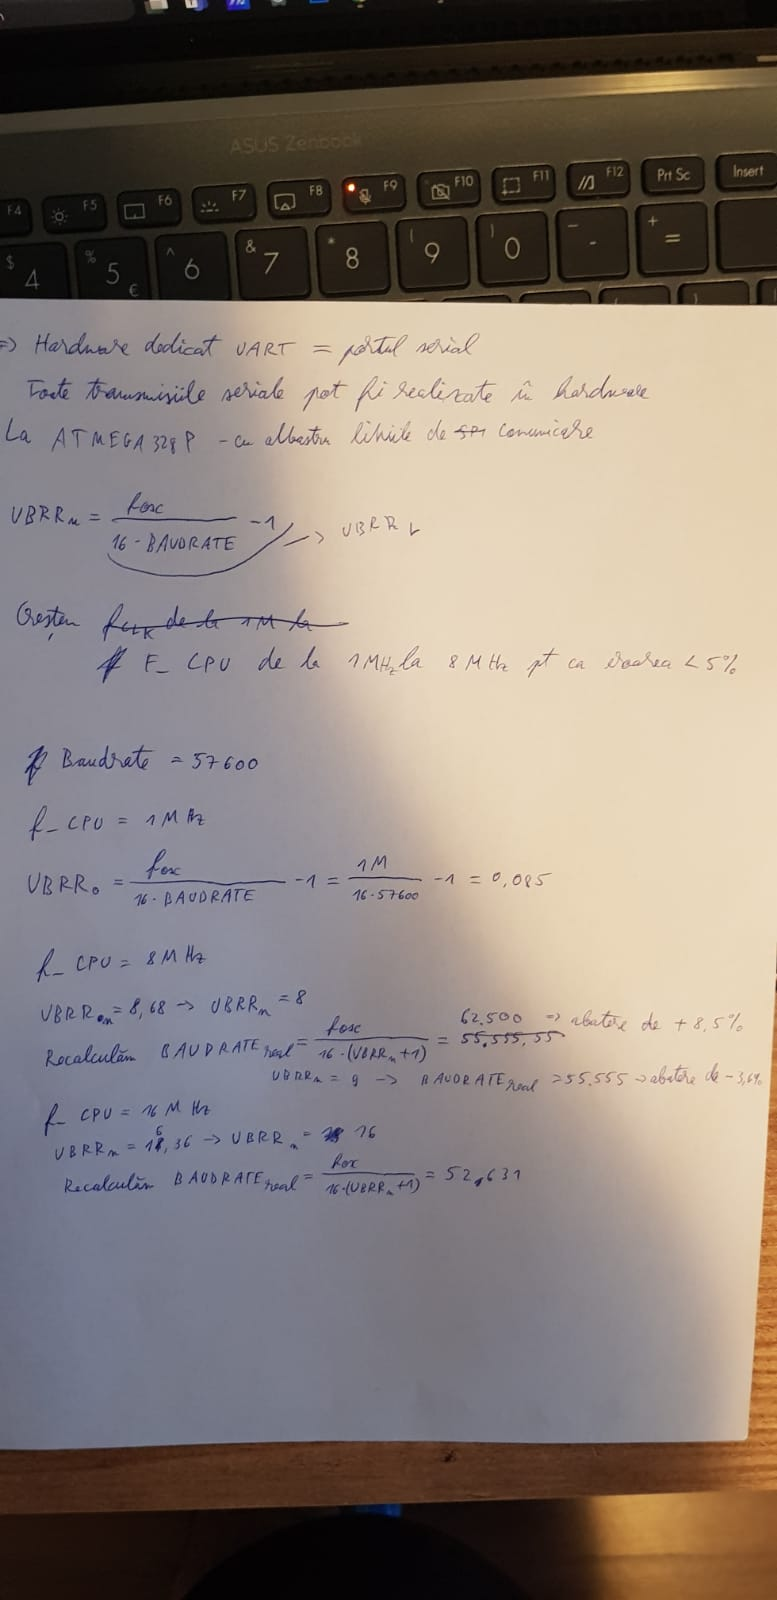 ASUS Zenbook
F4 F5 F6 F7 F8 F9 F10 F11 F12 Prt Sc Insert
$ 4 % 5 € ^ 6 & 7 * 8 ( 9 ) 0 _ - + =
=> Hardware dedicat UART = portul serial
Toate transmisiile seriale pot fi realizate în hardware
La ATMEGA328P - cu albastru liniile de SPI comunicare
UBRRn = fosc / 16 · BAUDRATE - 1 -> UBRR
Creștem fCLK de la 1M la
F_CPU de la 1MHz la 8MHz pt ca eroarea < 5%
Baudrate = 57600
f_CPU = 1MHz
UBRR0 = fosc / 16 · BAUDRATE - 1 = 1M / 16·57600 - 1 = 0,085
f_CPU = 8MHz
UBRR0n = 8,68 -> UBRRn = 8
Recalculăm BAUDRATE real = fosc / 16·(UBRRn+1) = 55.555,55 62.500 => abatere de + 8,5%
UBRRn = 9 -> BAUDRATE real = 55.555 => abatere de -3,6%
f_CPU = 16MHz
UBRRn = 16,36 -> UBRRn = 16
Recalculăm BAUDRATE real = fosc / 16·(UBRRn+1) = 52,631